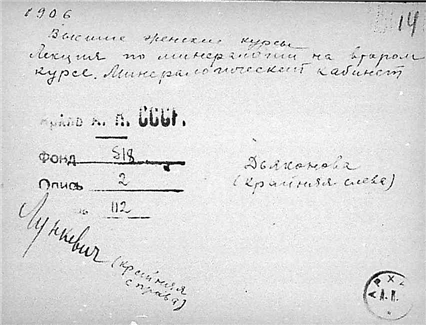 1906
14
Высшие женские курсы
Лекция по минералогии на втором
курсе. Минералогический кабинет
Архив А. Н. СССР.
Фонд 518
Опись 2
№ 112
Дьяконова
(крайняя слева)
Лункевич (крайняя
справа)
АРХ
А.Н.